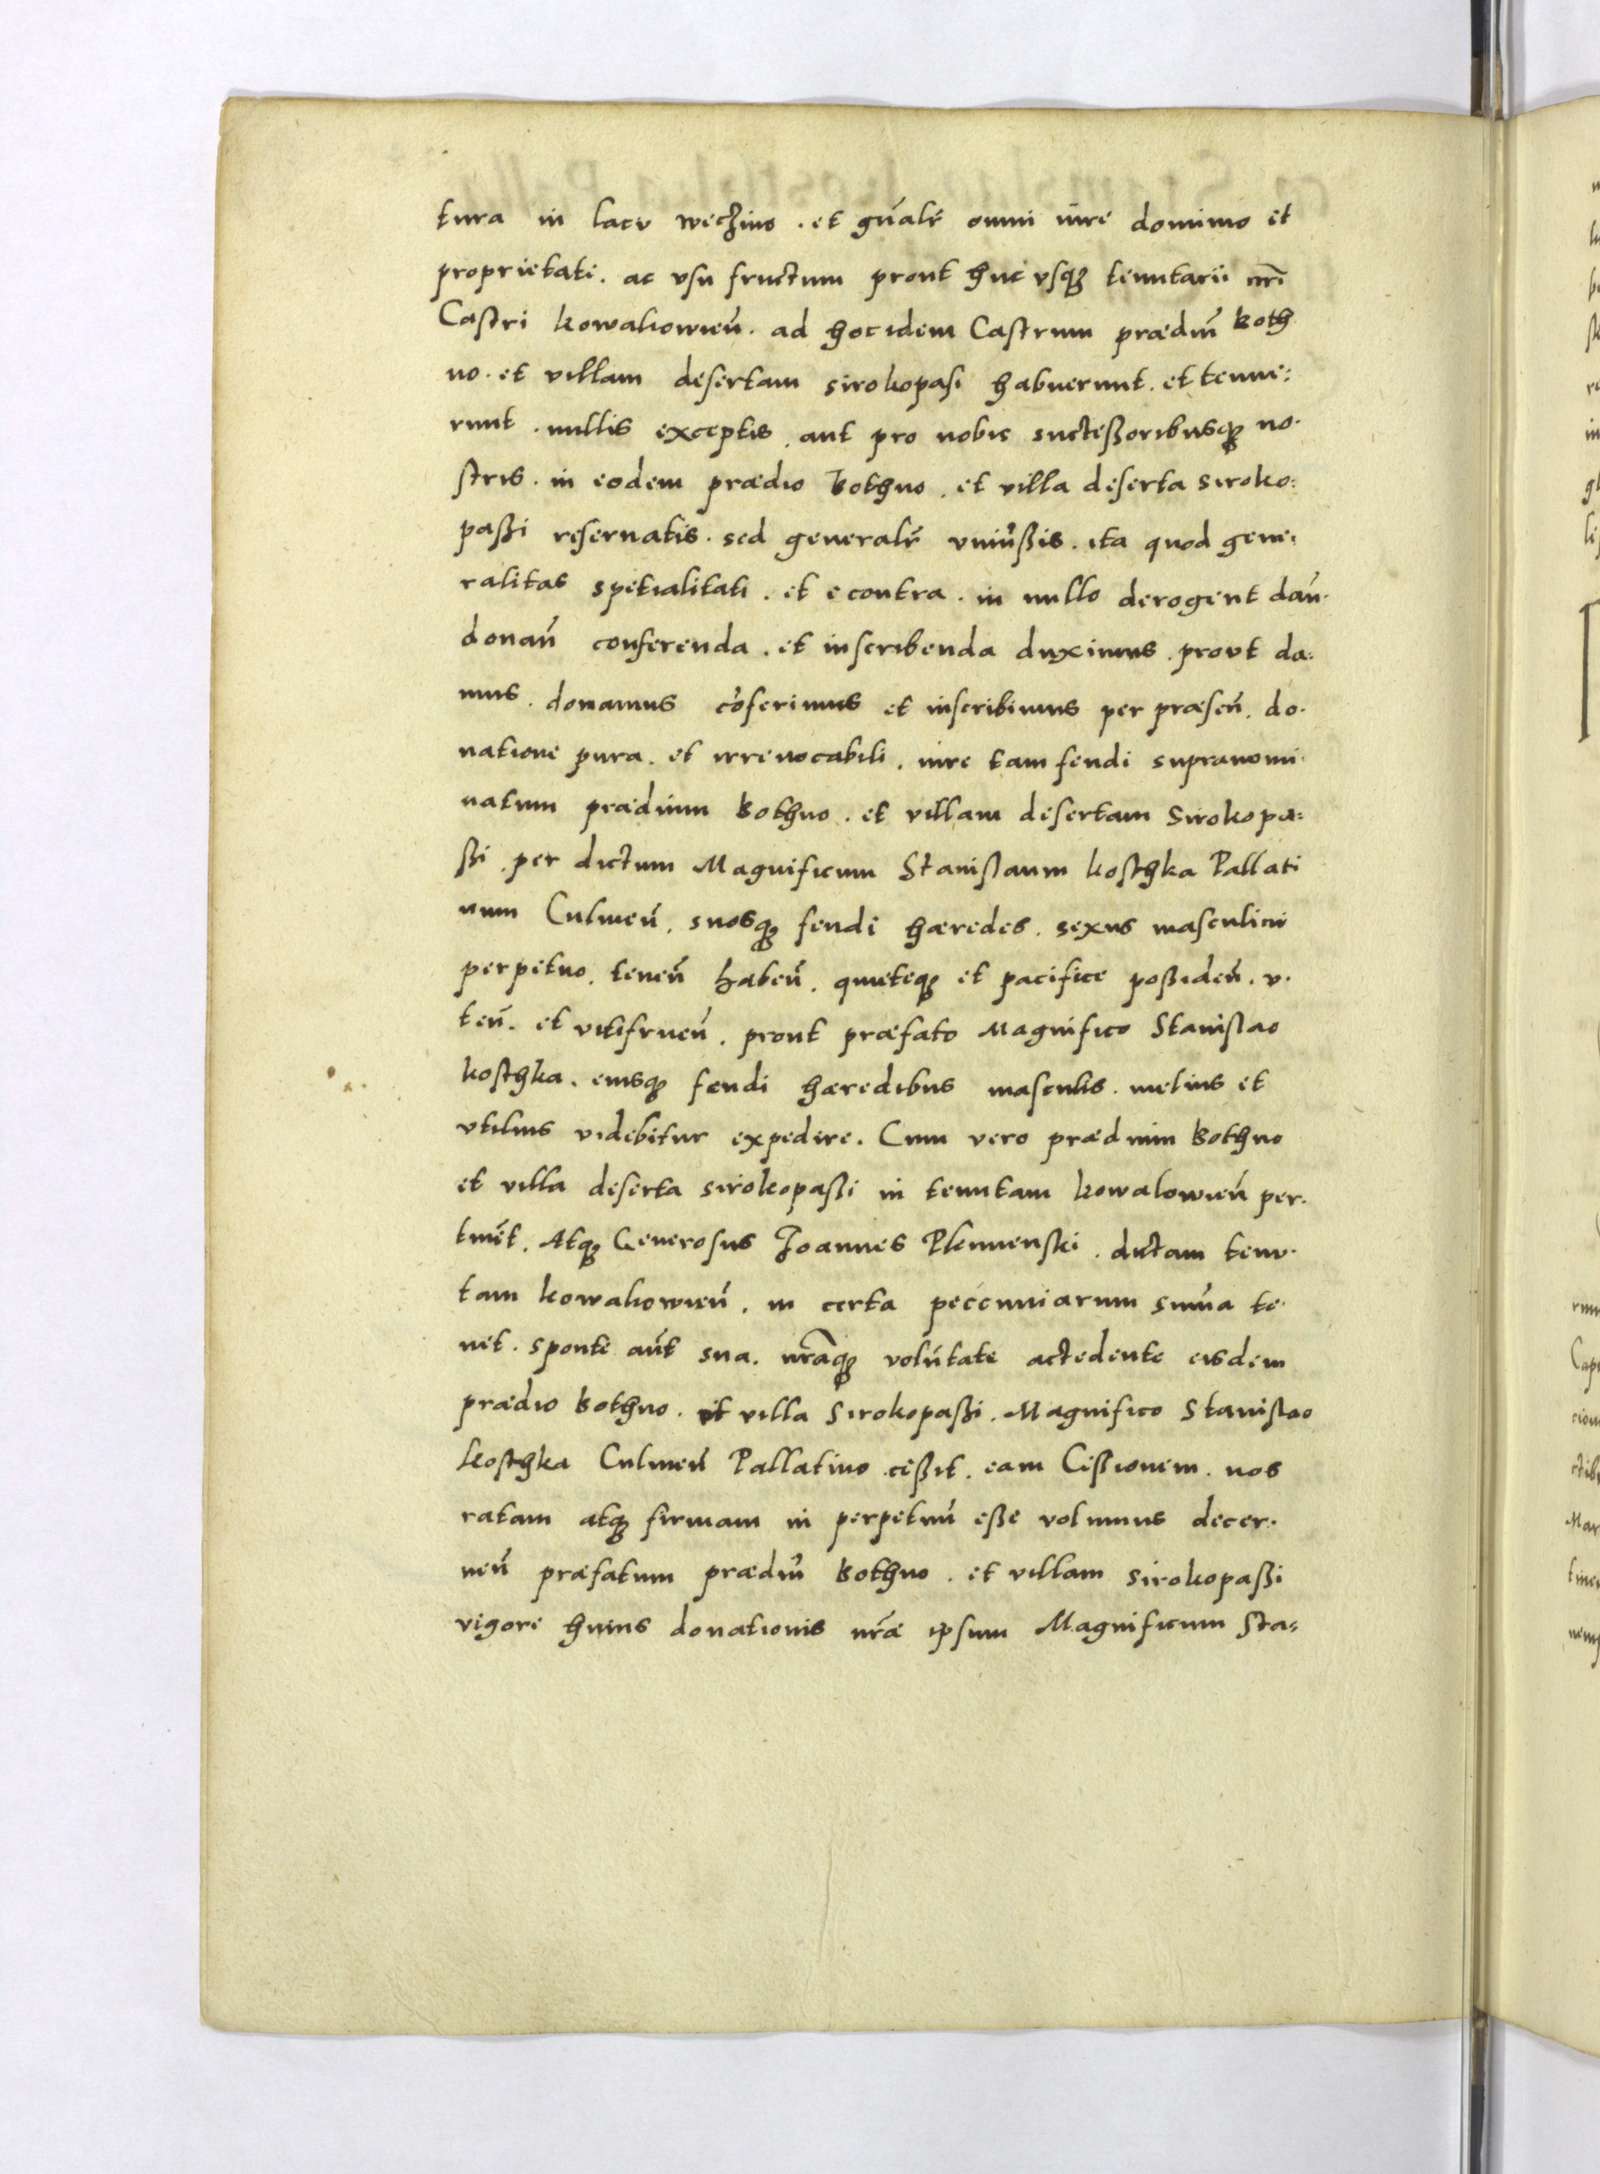 tura in lacu wechzino . et gn̄alr̄ omni iure dominio et
proprietate . ac vsu fructum prout huc vsq̧ tenutarii nr̄i
Castri kowalowien̄ . ad hoc idem Castrum prædiū Both
no . et villam desertam sirokopasi habuerunt . et tenue:
runt . nullis exceptis . aut pro nobis successoribusq̧ no.
stris . in eodem prædio Bothno . et villa deserta siroko:
passi reseruatis . sed generalr̄ vniuṡsis . ita quod gene:
ralitas spetialitati . et e contra . in nullo derogent dan̄.
donan̄ conferenda . et inscribenda duximus . prout da:
mus . donamus cōferimus et inscribimus per præsen̄ . do.
natione pura . et irreuocabili . iure tam feudi supranomi.
natum prædium Bothno . et villam desertam Sirokopa:
ssi . per dictum Magnificum Stanislaum kosthka Pallati
num Culmen̄ . suosq̧ feudi hæredes . sexus masculini
perpetuo . tenen̄ haben̄ . quieteq̧ et pacifice possiden̄ . v.
ten̄ . et vtifruen̄ . prout præfato Magnifico Stanislao
kosthka . eiusq̧ feudi hæredibus masculis . melius et
vtilius videbitur expedire . Cum vero prædium Bothno
et villa deserta sirokopassi in tenutam kowalowien̄ per.
tinēt . Atq̧ Generosus Joannes Plemienski . dictam tenu.
tam kowalowien̄ . in certa pecuniarum sum̄a te.
net . sponte aūt sua . nr̄aq̧ volūtate accedente eisdem
prædio Bothno . et villa Sirokopassi . Magnifico Stanislao
kosthka Culmen̄ Pallatino cessit . eam Cessionem . nos
ratam atq̧ firmam in perpetuū esse volumus decer.
nen̄ præfatum prædiū Bothno . et villam sirokopassi
vigore huius donationis nr̄æ ipsum Magnificum Sta=